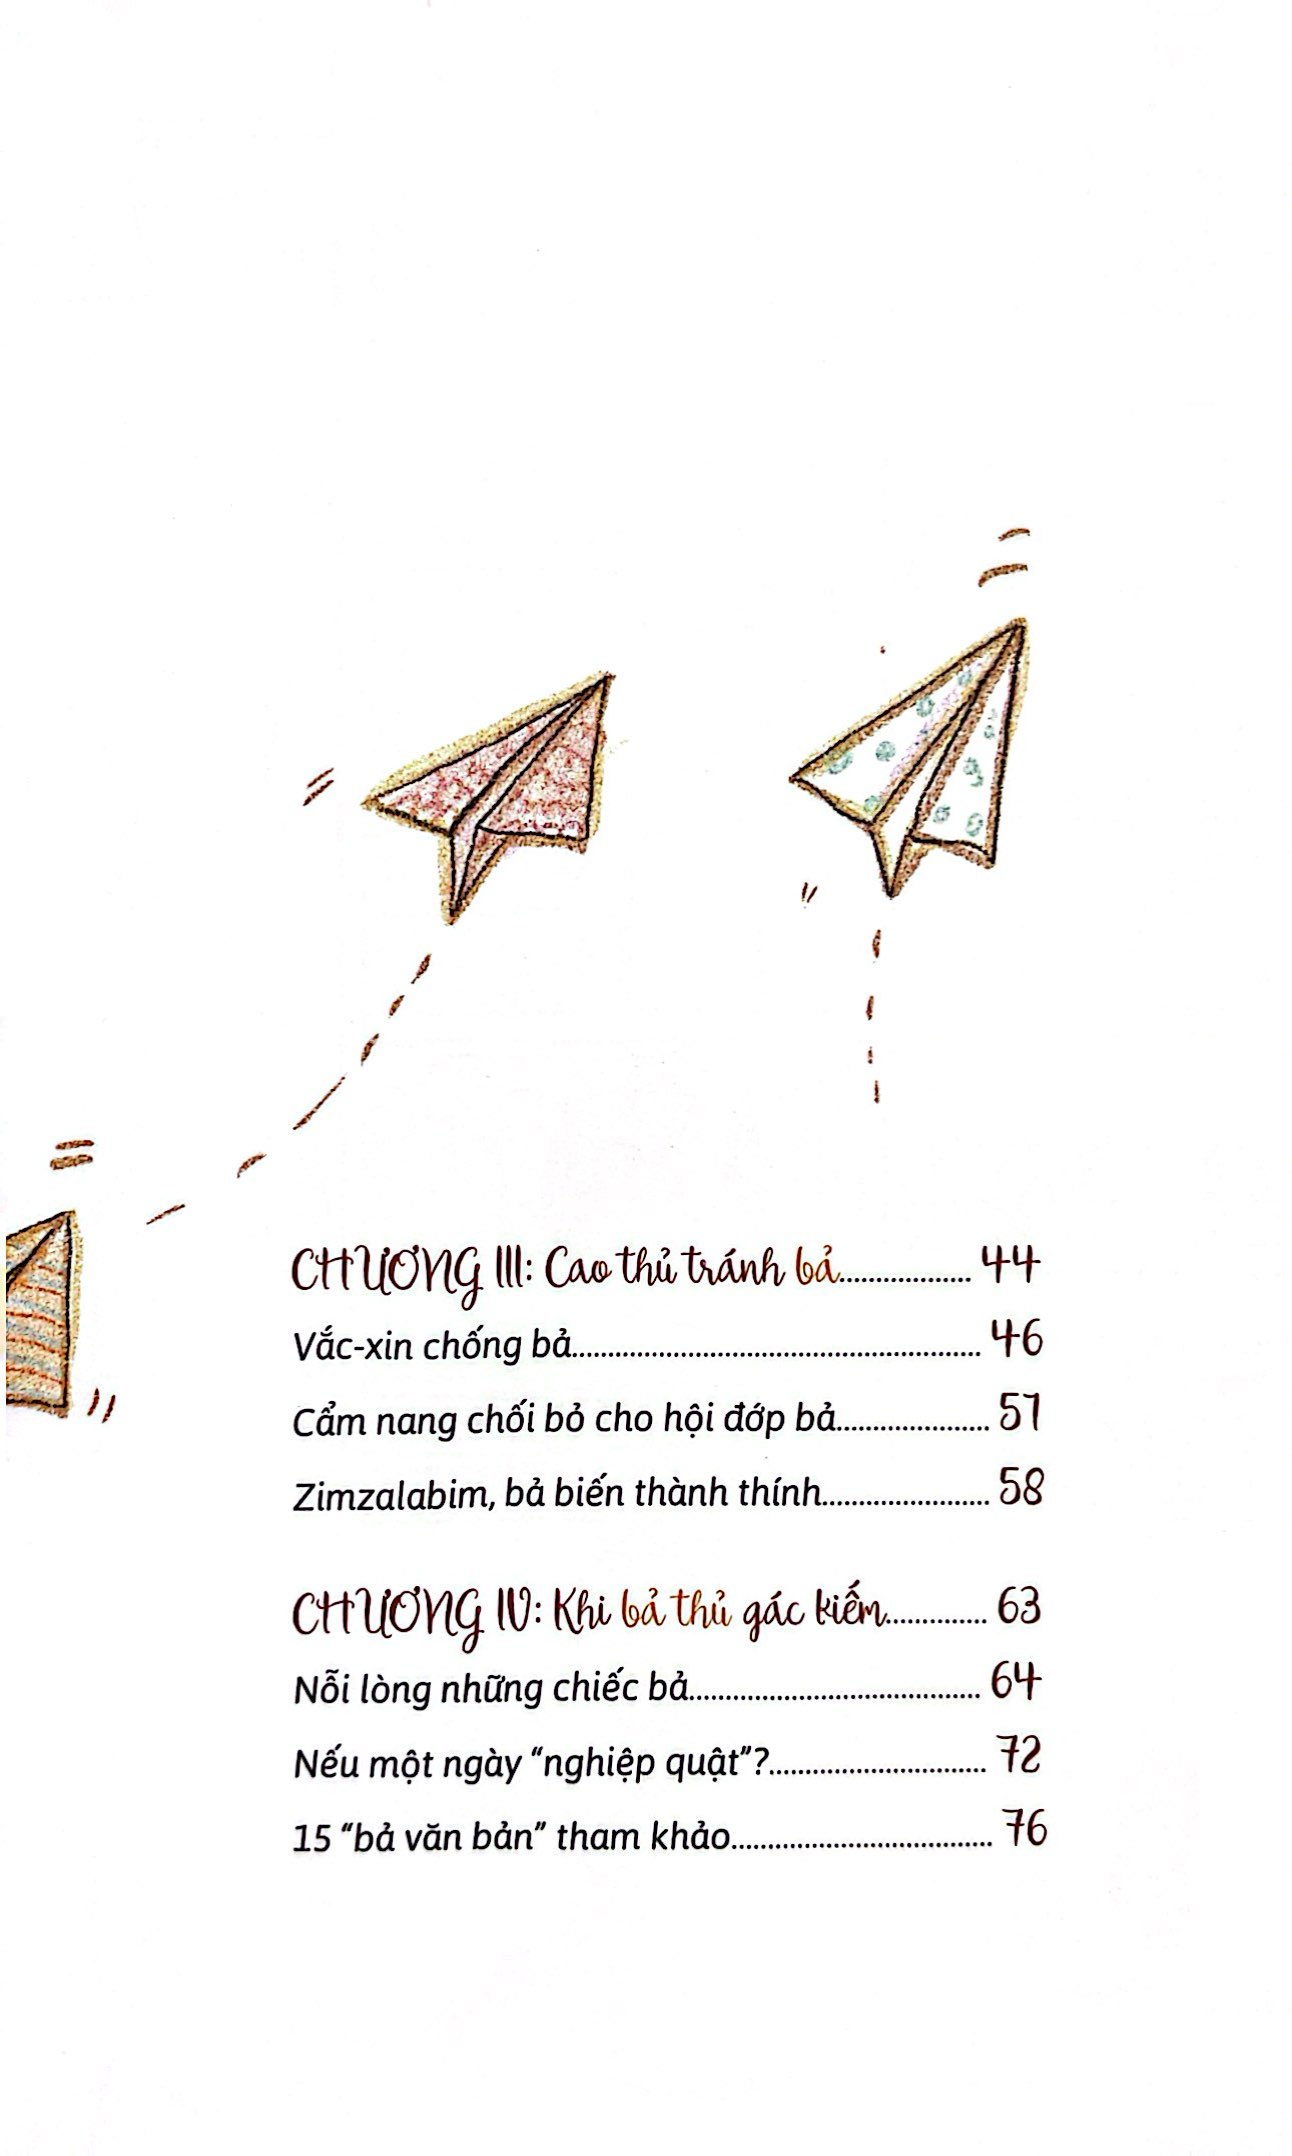 CHƯƠNG III: Cao thủ tránh bả.................. 44
Vắc-xin chống bả...................................................... 46
Cẩm nang chối bỏ cho hội đớp bả.................... 51
Zimzalabim, bả biến thành thính...................... 58
CHƯƠNG IV: Khi bả thủ gác kiếm............. 63
Nỗi lòng những chiếc bả...................................... 64
Nếu một ngày “nghiệp quật”?............................ 72
15 “bả văn bản” tham khảo.................................. 76